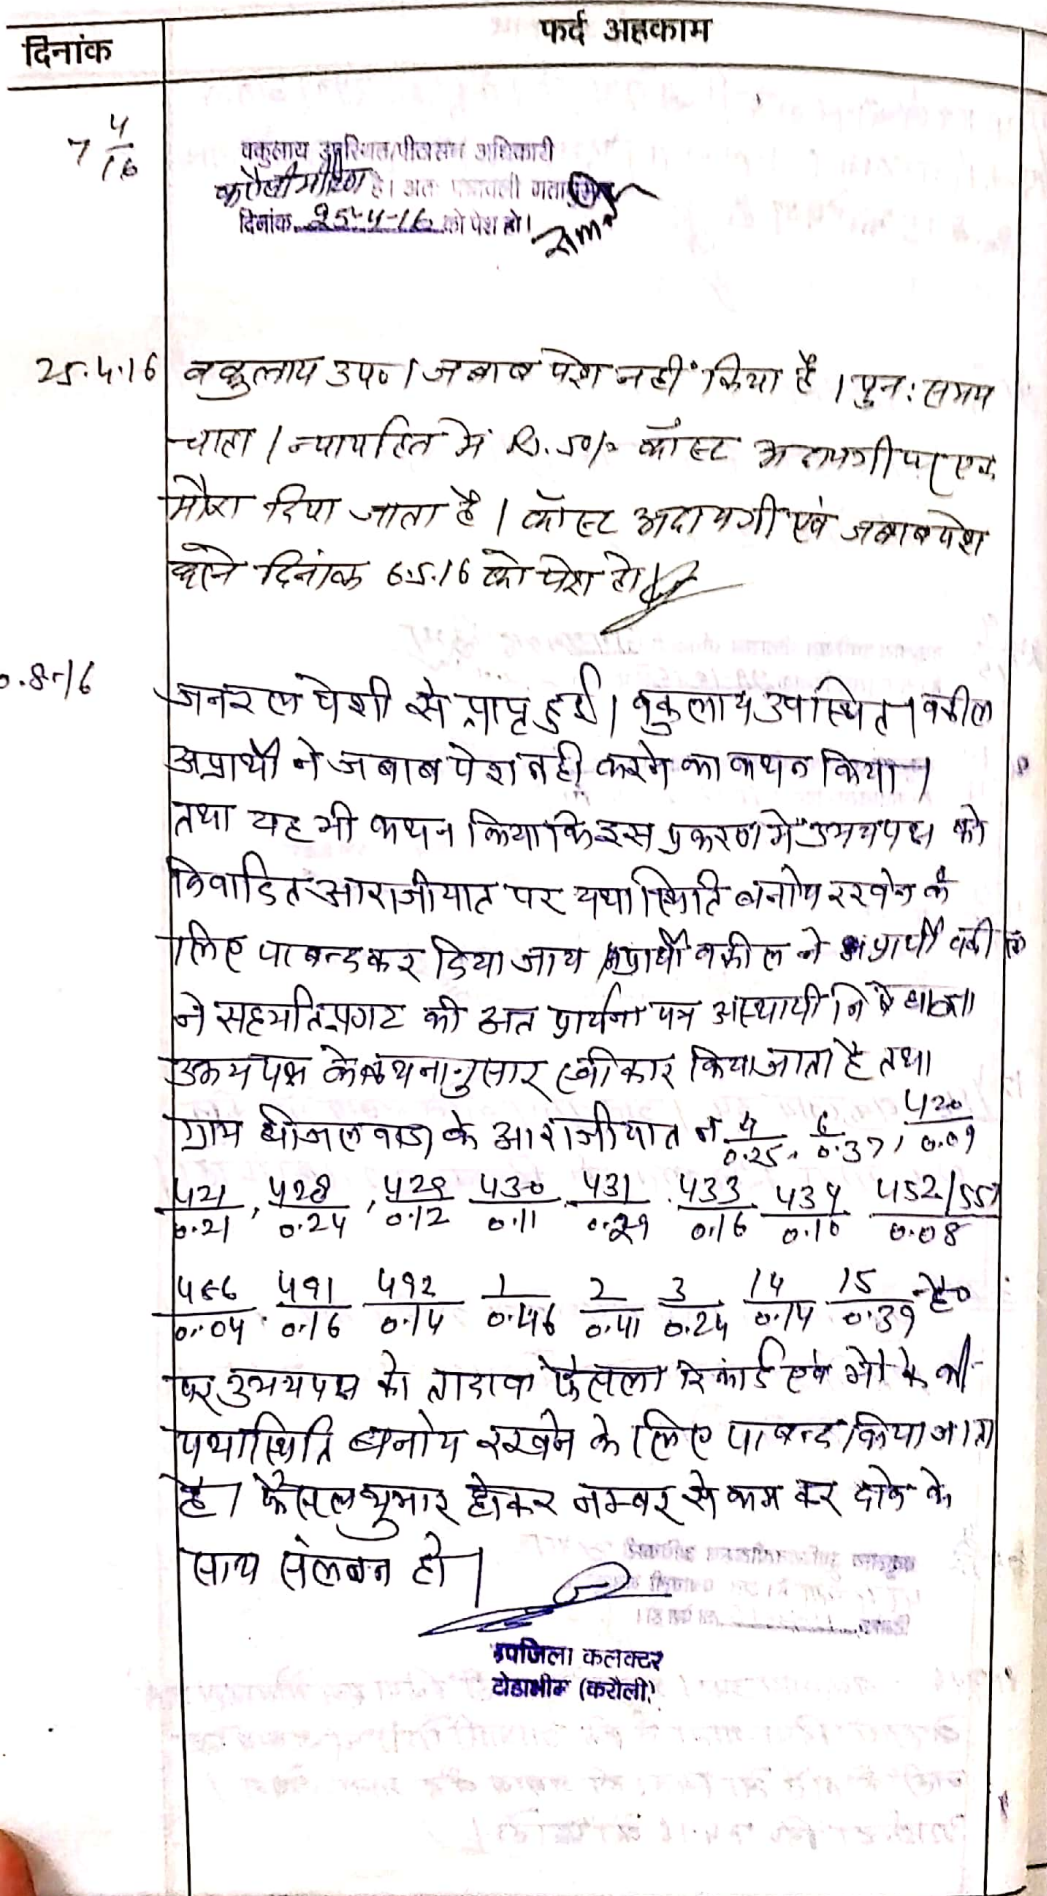 दिनांक
फर्द अहकाम
7 4/16
वकुलाय उपस्थित/पीठासीन अधिकारी
है। अतः पत्रावली
दिनांक 25-4-16 को पेश हो।
25.4.16 वकुलाय उप० । जबाब पेश नहीं किया है । पुनः समय
चाहा । न्यायहित में Rs. 50/- कॉस्ट अदायगी पर एक
मौका दिया जाता है । कॉस्ट अदायगी एवं जबाब पेश
करने दिनांक 6.5.16 को पेश हो।
.8-16
जनरल पेशी से प्राप्त हुई । वकुलाय उपस्थित । वकील
अप्रार्थी ने जबाब पेश नही करने का कथन किया ।
तथा यह भी कथन किया कि इस प्रकरण में उभयपक्ष को
विवादित आराजीयात पर यथास्थिति बनाये रखने के
लिए पाबन्द कर दिया जाय वकील ने प्रार्थी वकील
ने सहमति प्रगट की अत प्रार्थना पत्र अस्थायी निषेधाज्ञा
उभयपक्ष के कथनानुसार स्वीकार किया जाता है तथा
ग्राम के आराजीयात नं 4/0.25, 6/0.37, 420/0.09
421/0.21, 428/0.24, 429/0.12 430/0.11 431/0.29 433/0.16 434/0.10 452/557/0.08
486/0.04 491/0.16 492/0.14 1/0.46 2/0.41 3/0.24 14/0.14 15/0.39 है०
पर उभयपक्ष को तादावा फैसला रिकार्ड एवं मौके की
यथास्थिति बनाये रखने के लिए पाबन्द किया जाता
है । फैसल शुमार होकर नम्बर से कम कर दावे के
साथ संलग्न हो ।
उपजिला कलक्टर
टोडाभीम (करौली)